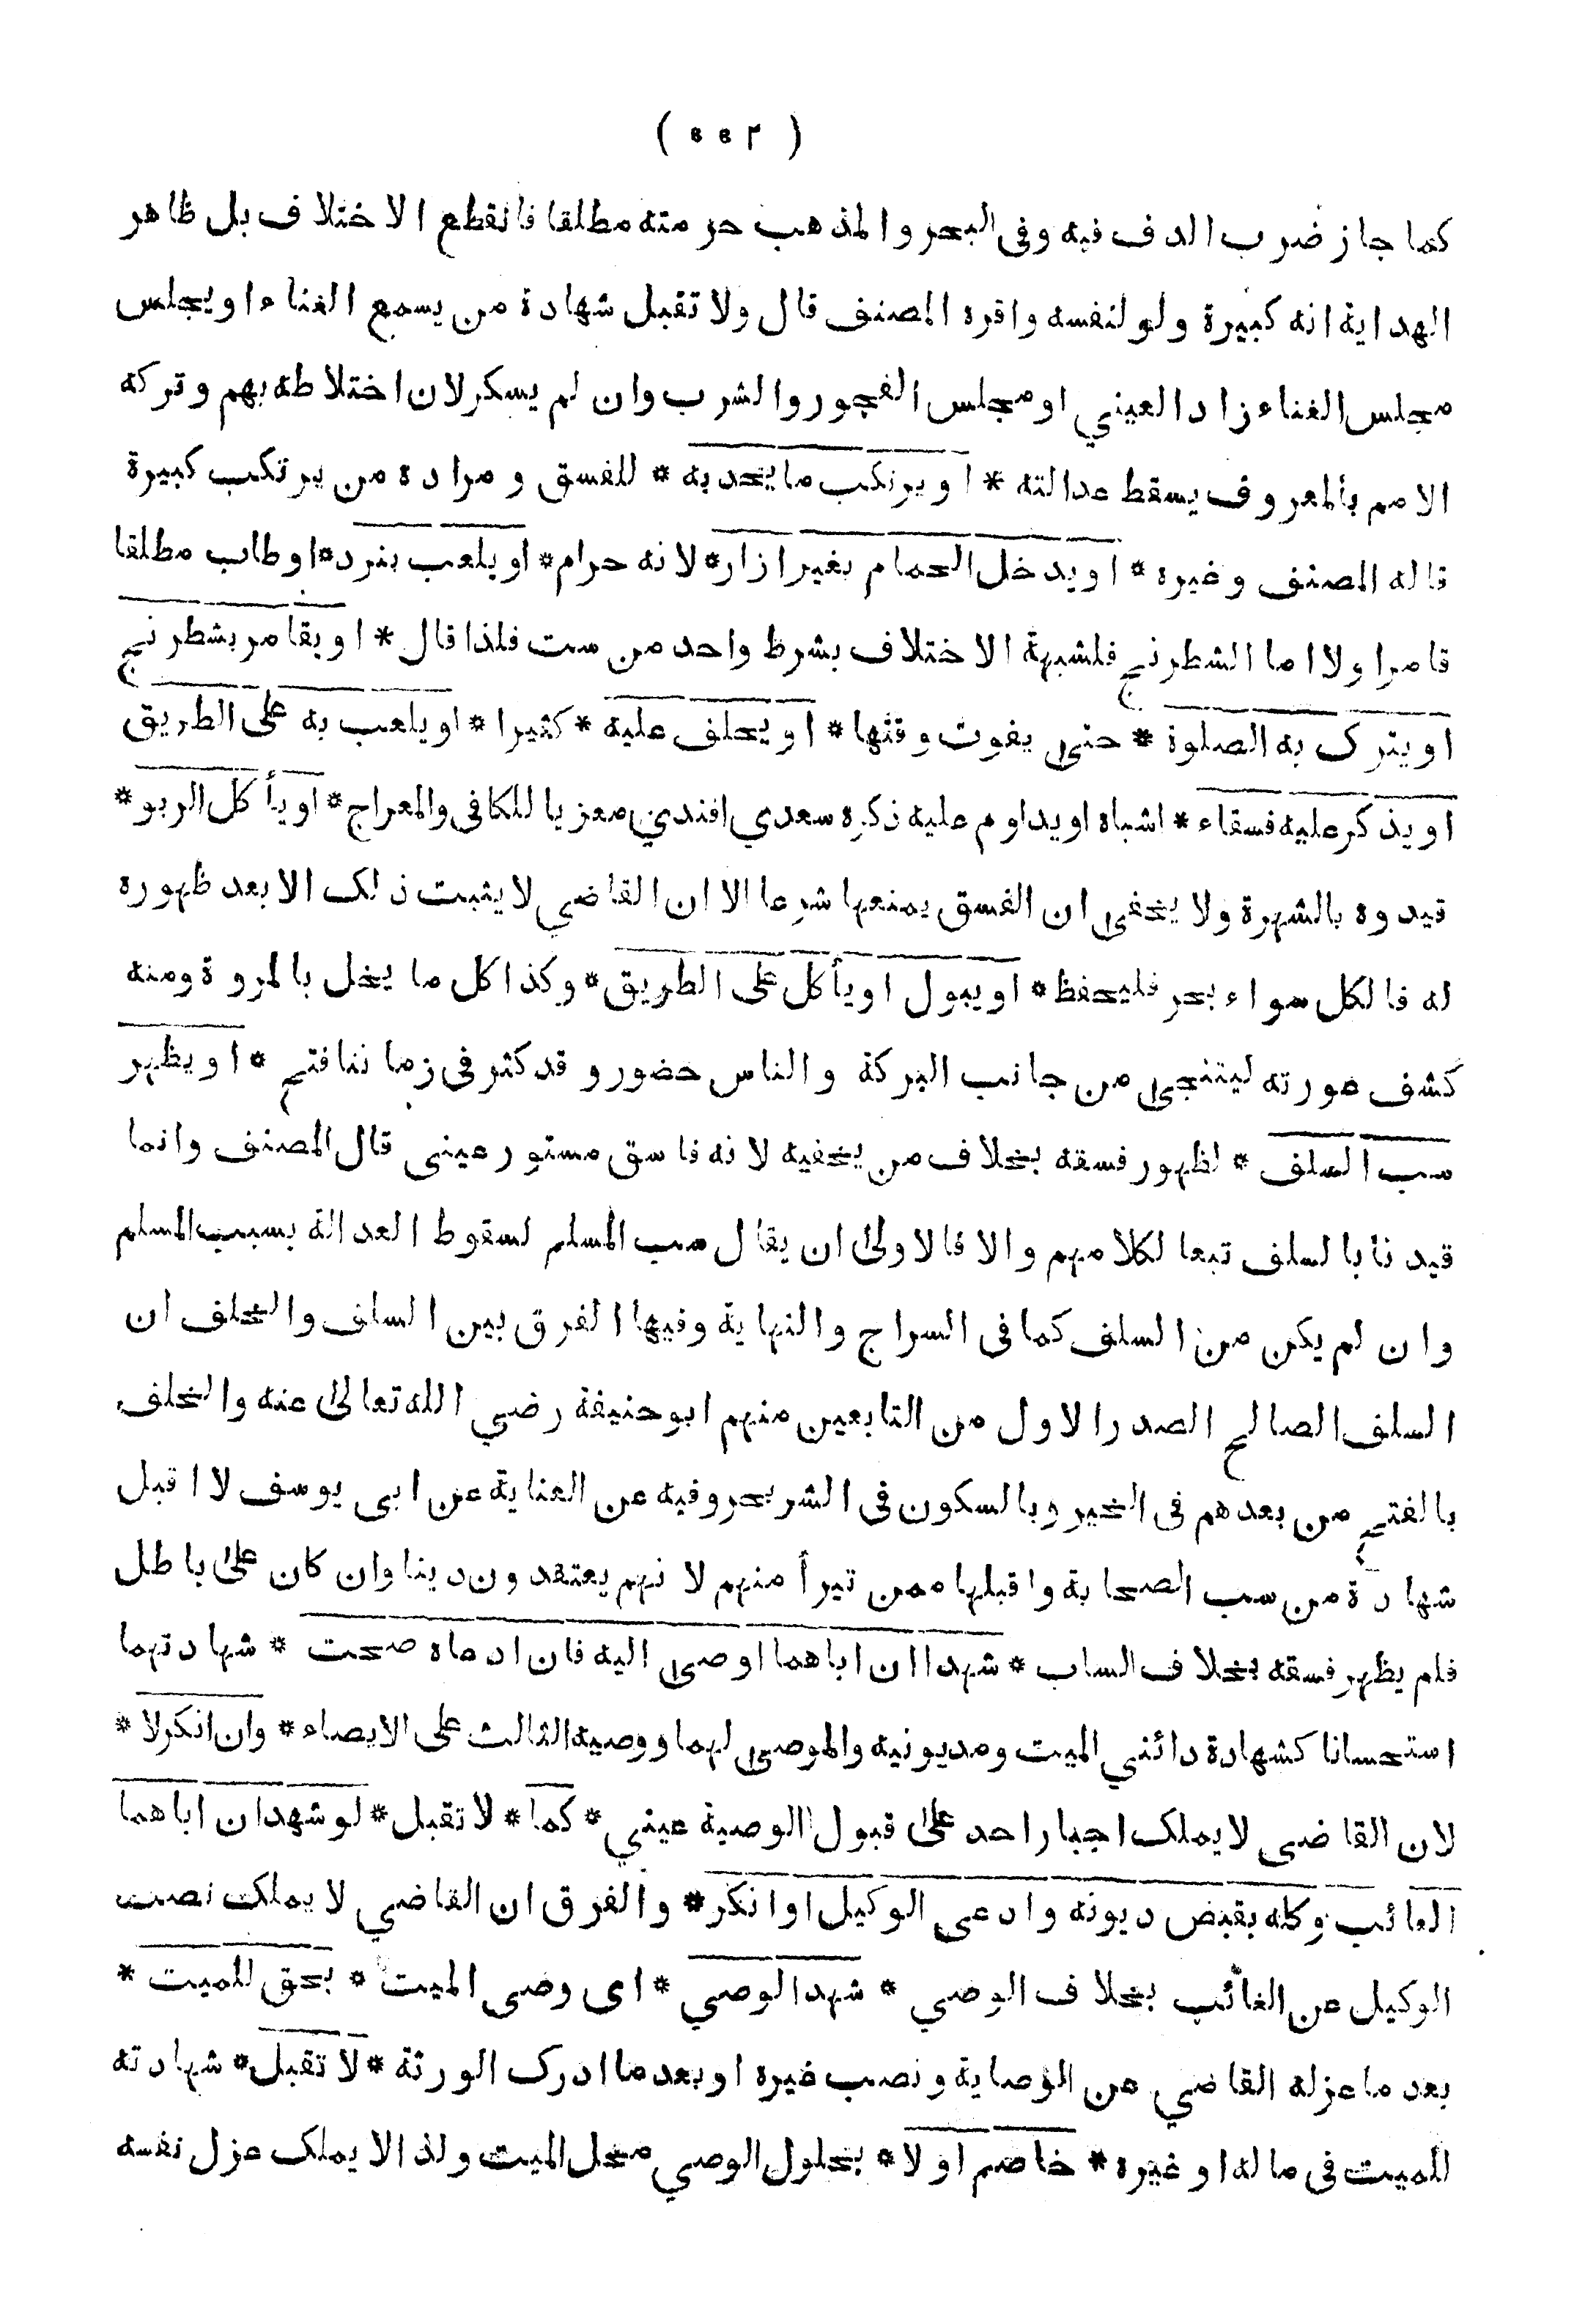 ( ٥٥٢ )
كما جاز ضرب الدف فيه وفى البحر والمذهب حرمته مطلقا فانقطع الاختلاف بل ظاهر
الهداية انه كبيرة ولو لنفسه واقره المصنف قال ولا تقبل شهادة من يسمع الغناء او يجلس
مجلس الغناء زاد العيني او مجلس الفجور والشرب وان لم يسكر لان اختلاطه بهم وتركه
الامر بالمعروف يسقط عدالته * او يرتكب ما يحد به * للفسق و مراده من يرتكب كبيرة
قاله المصنف وغيره * او يدخل الحمام بغير ازار * لانه حرام * او يلعب بنرد * او طاب مطلقا
قامرا ولا اما الشطرنج فلشبهة الاختلاف بشرط واحد من ست فلذا قال * او يقامر بشطرنج
او يترك به الصلوة * حتى يفوت وقتها * او يحلف عليه * كثيرا * او يلعب به على الطريق
او يذكر عليه فسقاء * اشباه او يداوم عليه ذكره سعدي افندي معزيا للكافى والمعراج * او يأكل الربو *
قيدوه بالشهرة ولا يخفى ان الفسق يمنعها شرعا الا ان القاضي لا يثبت ذلك الا بعد ظهوره
له فالكل سواء بحر فليحفظ * او يبول او يأكل على الطريق * وكذا كل ما يخل بالمروة ومنه
كشف عورته ليتنجى من جانب البركة والناس حضور وقد كثر فى زماننا فتح * او يظهر
سب السلف * لظهور فسقه بخلاف من يخفيه لانه فاسق مستور عينى قال المصنف وانما
قيدنا بالسلف تبعا لكلامهم والا فالاولى ان يقال سب المسلم لسقوط العدالة بسبب المسلم
وان لم يكن من السلف كما فى السراج والنهاية وفيها الفرق بين السلف والخلف ان
السلف الصالح الصدر الاول من التابعين منهم ابو حنيفة رضي الله تعالى عنه والخلف
بالفتح من بعدهم فى الخير وبالسكون فى الشر بحر وفيه عن العناية عن ابى يوسف لا اقبل
شهادة من سب الصحابة واقبلها ممن تبرأ منهم لانهم يعتقدون دينا وان كان على باطل
فلم يظهر فسقه بخلاف الساب * شهدا ان اباهما اوصى اليه فان ادعاه صحت * شهادتهما
استحسانا كشهادة دائني الميت ومديونيه والموصى لهما ووصيه الثالث على الايصاء * وان انكر لا *
لان القاضى لا يملك اجبار احد على قبول الوصية عيني * كما * لا تقبل * لو شهد ان اباهما
الغائب وكله بقبض ديونه وادعى الوكيل او انكر * والفرق ان القاضي لا يملك نصب
الوكيل عن الغائب بخلاف الوصي * شهد الوصي * اى وصى الميت * بحق للميت *
بعد ما عزله القاضي عن الوصاية ونصب غيره او بعد ما ادرك الورثة * لا تقبل * شهادته
للميت فى ماله او غيره * خاصم او لا * بحلول الوصي محل الميت ولذا لا يملك عزل نفسه